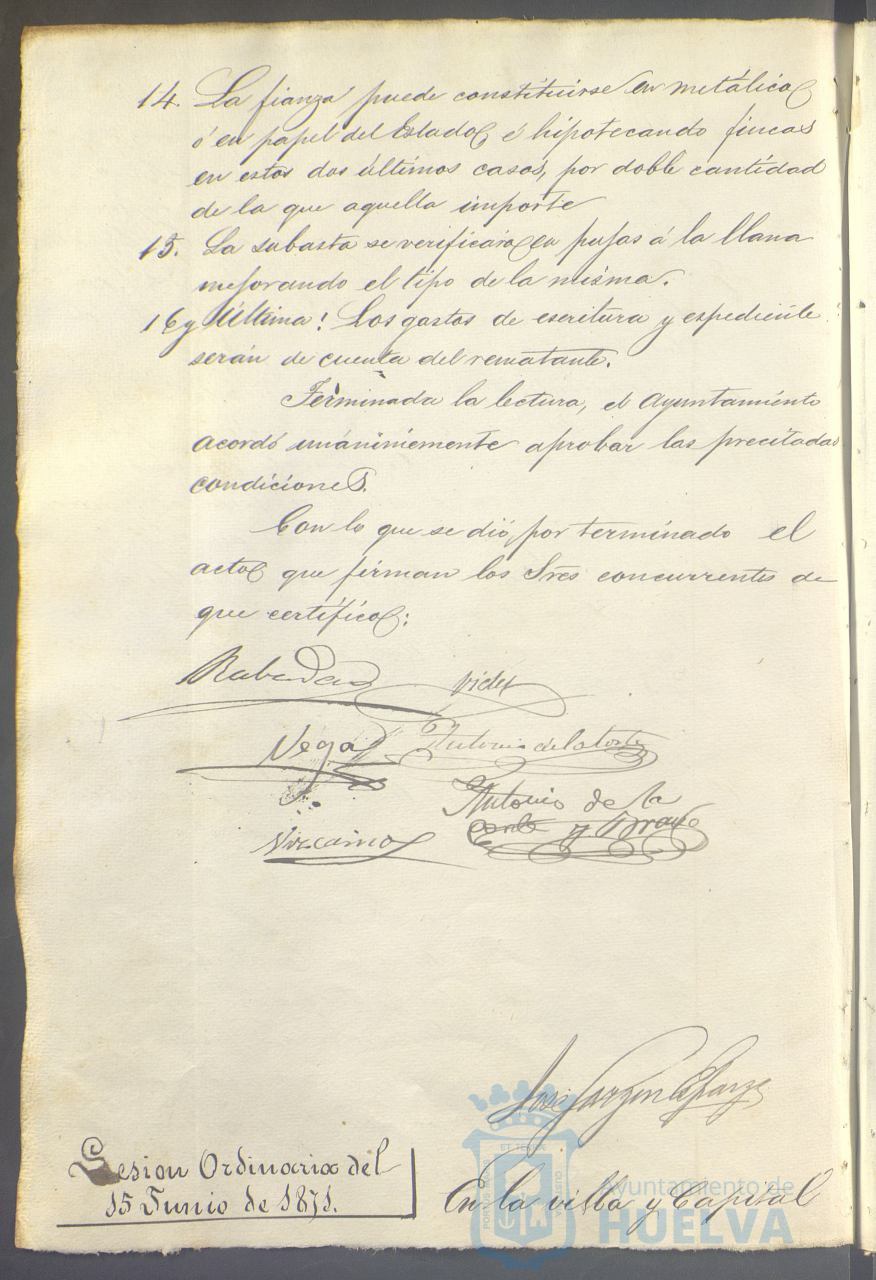 14. La fianza puede constituirse en metálico
ó en papel del Estado é hipotecando fincas
en estos dos últimos casos, por doble cantidad
de la que aquella importe
15. La subasta se verificará en pujas á la llana
mejorando el tipo de la misma.
16 y última! Los gastos de escritura y espediente
serán de cuenta del rematante.
Terminada la lectura, el Ayuntamiento
acordó unánimemente aprobar las precitadas
condiciones.
Con lo que se dió por terminado el
acto que firman los Sres concurrentes de
que certifico:
Videz
Vega Antonio de la Corte
Antonio de la
Corte y Bravo
Vizcaino
José Garzon
Sesion Ordinaria del
15 Junio de 1871.
En la villa y Capital
Ayuntamiento de
HUELVA